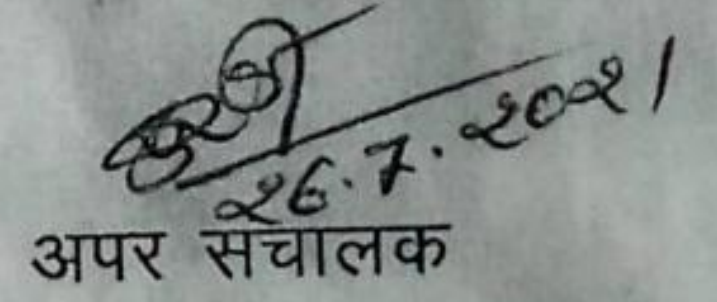 26.7.2021
अपर संचालक